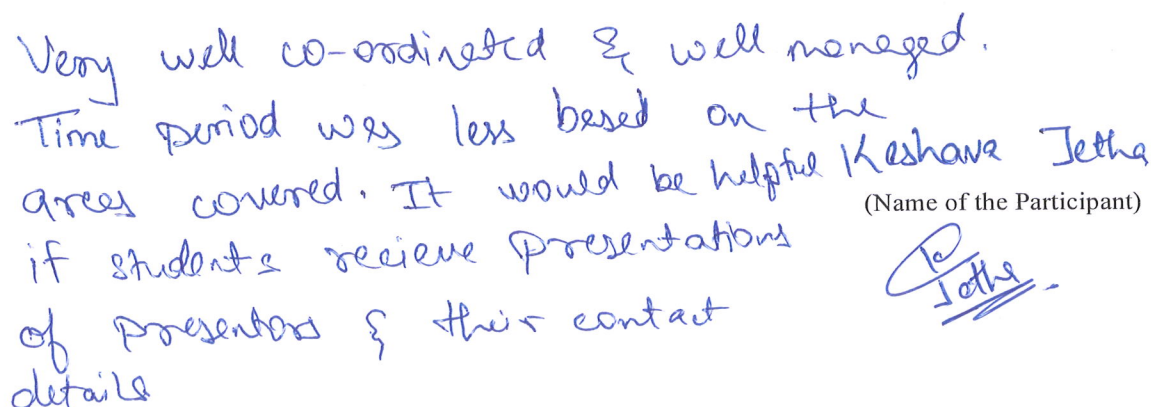 Very well co-ordinated & well maneged.
Time period was less based on the
areas covered. It would be helpful
if students recieve presentations
of presentors & their contact
details
Keshava Jetha
(Name of the Participant)
Jetha